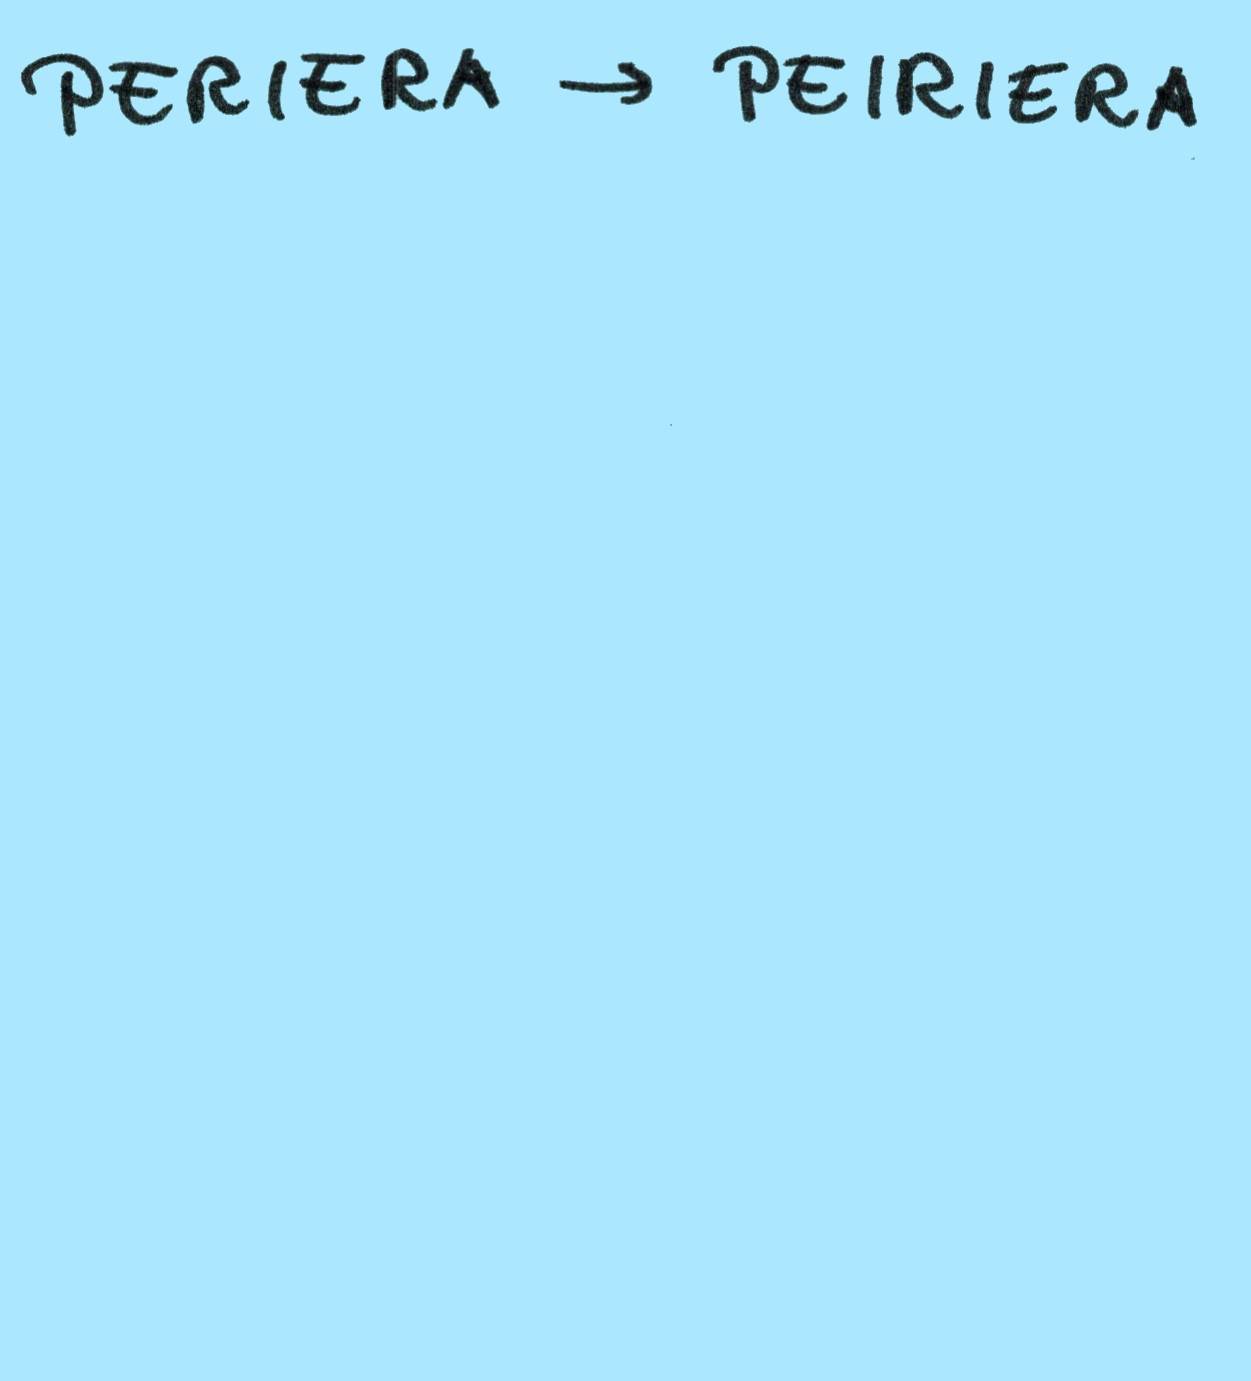 PERIERA → PEIRIERA